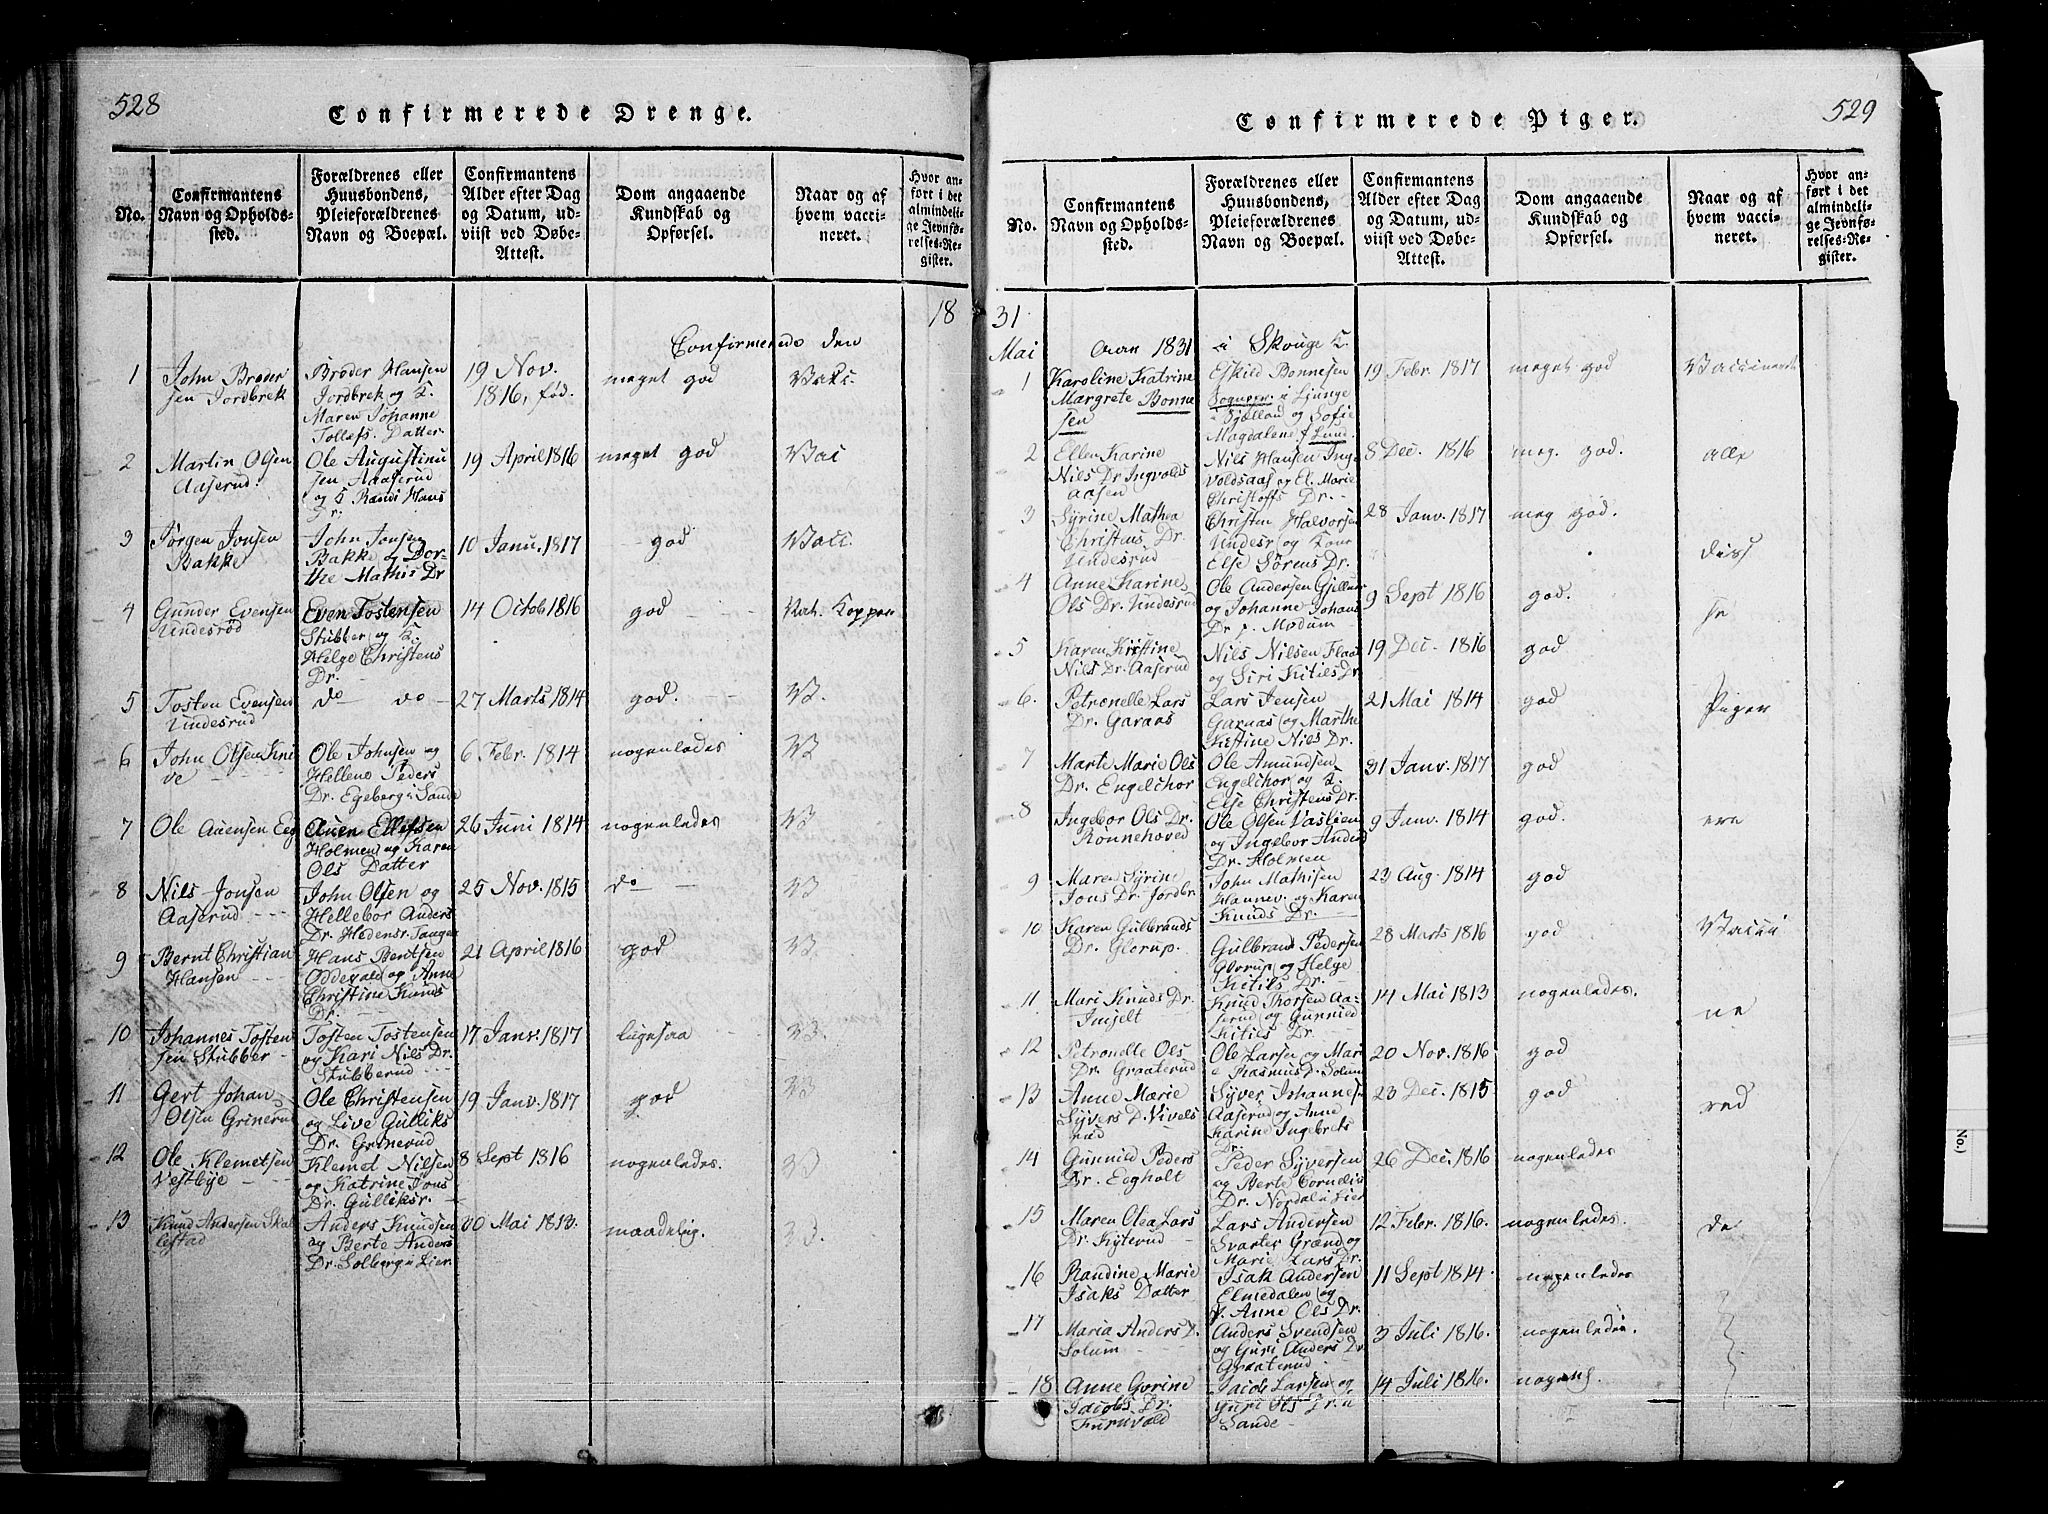 528
Confirmerede Drenge.
No.
Confirmantens
Navn og Opholds-
sted.
Forældrenes eller
Huusbondens,
Pleieforældrenes
Navn og Boepæl.
Confirmantens
Alder efter Dag
og Datum, ud-
viist ved Døbe-
Attest.
Dom angaaende
Kundskab og
Opførsel.
Naar og af
hvem vacci-
neret.
Hvor an-
ført i det
almindeli-
ge Jevnfø-
relses-Re-
gister.
18
Confirmerede den
1
John Brøder
sen Jordbrek
Brøder Hansen
Jordbrek og K.
Maren Johanne
Tollefs. Datter
19 Nov.
1816, fød.
meget god
Vakc.
2
Martin Olsen
Aaserud.
Ole Augustinu
sen Aaserud
og K Randi Hans
Dr.
19 April 1816
meget god
Vac
3
Jørgen Jonsen
Bakke
John Jonsen
Bakke og Dor-
the Mathis Dr
10 Janu. 1817
god
Vacc.
4
Gunder Evensen
Undesrød
Even Tostensen
Stubber og K.
Helge Christens
Dr.
14 Octob 1816
god
Nat. Kopper
5
Tosten Evensen
Undesrud
do do
27 Marts 1814
god.
V.
6
John Olsen Kni
ve
Ole Johnsen og
Hellene Peders
Dr. Egeberg i Sande
6 Febr. 1814
nogenledes
V
7
Ole Auensen Eeg
Auen Ellefsen
Holmen og Karen
Ols Datter
26 Juni 1814
nogenledes
V
8
Nils Jonsen
Aaserud
John Olsen og
Hellebor Anders
Dr. Hedensr. Tangen
25 Nov. 1815
do
V
9
Bernt Christian
Hansen
Hans Bentsen
Oddevald og Anne
Christine Knuds
Dr.
21 April 1816
god
V.
10
Johannes Tosten
sen Stubber
Tosten Tostensen
og Kari Nils Dr.
Stubberud
17 Janv. 1817
ligesaa
V.
11
Gert Johan
Olsen Grinerud
Ole Christensen
og Live Gulliks
Dr. Grinerud
19 Janv. 1817
god
V
12
Ole Klemetsen
Vestbye
Klemet Nilsen
og Katrine Jons
Dr. Gulliksr.
8 Sept 1816
nogenledes.
V
13
Knud Andersen Skal
lestad
Anders Knudsen
og Berte Anders
Dr. Solberg i Lier
30 Mai 1813.
maadelig.
V.
529
Confirmerede Piger.
No.
Confirmantens
Navn og Opholds-
sted.
Forældrenes eller
Huusbondens,
Pleieforældrenes
Navn og Boepæl.
Confirmantens
Alder efter Dag
og Datum, ud-
viist ved Døbe-
Attest.
Dom angaaende
Kundskab og
Opførsel.
Naar og af
hvem vacci-
neret.
Hvor an-
ført i det
almindeli-
ge Jevnfø-
relses-Re-
gister.
31
Mai
1831
i Skouge K.
1
Karoline Katrine
Margrete Bonne
sen
Eskild Bonnesen
Sognepr. i Ljunge
i Sjelland og Sofie
Magdalene f Lund.
19 Febr. 1817
meget god
Vaccinerede
2
Ellen Karine
Nils Dr Ingvolds
aasen
Nils Hansen Ing
voldsaas og El. Marie
Christoffs Dr.
8 Dec. 1816
meg. god.
alle
3
Syrine Mathea
Christens Dr.
Undesrud
Christen Halvorsen
Undesr og Kone
Else Sørens Dr.
28 Janv. 1817
meg god.
diss
4
Anne Karine
Ols Dr. Undesrud
Ole Andersen Gjellum
og Johanne Johans
Dr p. Modum
9 Sept 1816
god.
se
5
Karen Kristine
Nils Dr. Aaserud
Nils Nilsen Flaa
og Siri Kitils Dr
19 Dec. 1816
god
6.
Petronelle Lars
Dr. Garaas
Lars Jensen
Garaas og Marthe
Kistine Nils Dr.
21 Mai 1814
god
Piger
7
Marte Marie Ols
Dr. Engelchor
Ole Amundsen
Engelchor og K.
Else Christens Dr.
31 Janv. 1817
god
8
Ingebor Ols Dr.
Rønnehoved
Ole Olsen Vaslien
og Ingebor Anders
Dr. Holmen
9 Janv. 1814
god.
ere
9
Maren Syrine
Jons Dr. Jordbr.
John Mathisen
Hannev. og Karen
Knuds Dr.
23 Aug. 1814
god
10
Karen Gulbrands
Dr. Glorup.
Gulbrand Pedersen
Glorup og Helge
Kitils Dr.
28 Marts 1816
god
Vacci
11.
Mari Knuds Dr.
Imjelt
Knud Thorsen Aa-
serud og Gunnild
Kitils Dr.
14 Mai 1813
nogenledes.
ne
12
Petronelle Ols
Dr. Graaterud
Ole Larsen og Mari
e Rasmus D. Solum
20 Nov. 1816
god
13
Anne Marie
Syvers D. Vivels
rud
Syver Johannes.
Aaserud og Anne
Karine Ingebrets
Dr.
23 Dec. 1815
god
red
14
Gunnild Peders
Dr. Eegholt
Peder Syversen
og Berte Cornelis
Dr. Nordal i Lier
26 Dec. 1816
nogenledes
15
Maren Olea Lars
Dr. Kyterud
Lars Andersen
Svarter Grænd og
Marie Lars Dr.
12 Febr. 1816.
nogenledes.
de
16
Randine Marie
Isaks Datter
Isak Andersen
Elmedalen og
Anne Ols Dr.
11 Sept 1814.
nogenledes
17
Maria Anders D.
Solum
Anders Svendsen
og Guri Anders Dr
Graaterud
3 Juli 1816.
nogenledes.
18
Anne Gorine
Jacobs Dr.
Furuvald
Jacob Larsen og
Guri Ols Dr. i
Sande
14 Juli 1816.
nogenl.
No)